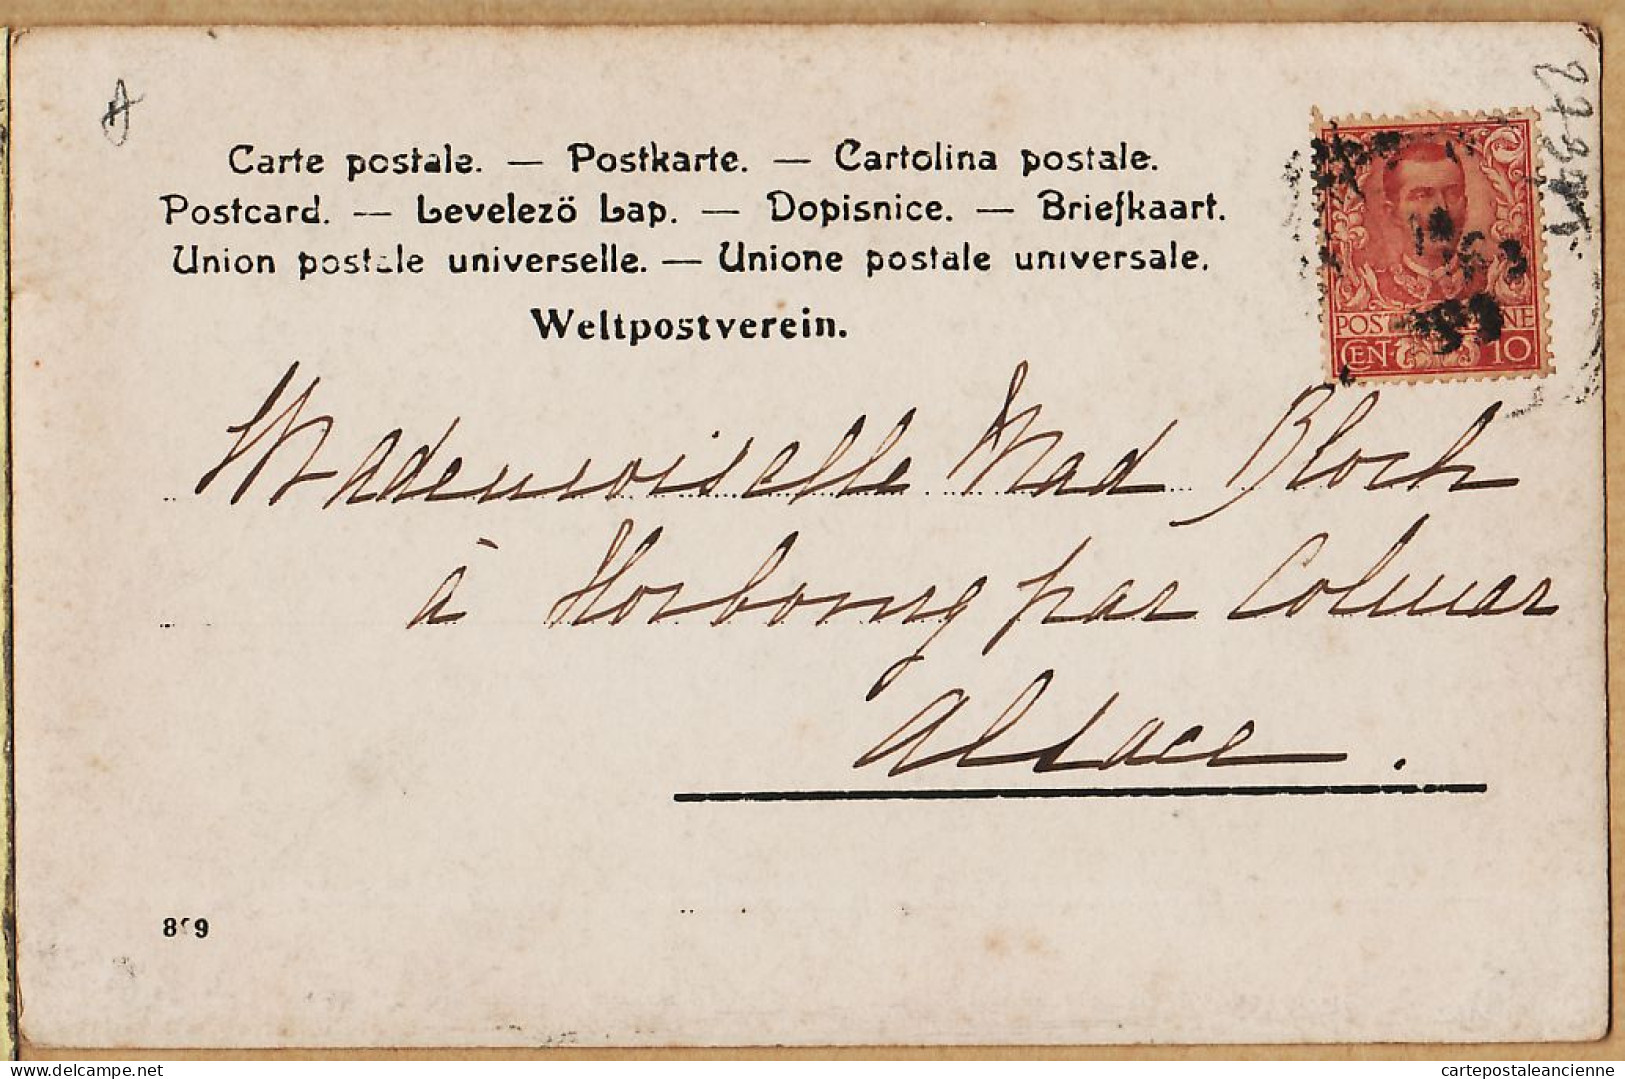 Carte postale. — Postkarte. — Cartolina postale.
Postcard. — Levelezö Lap. — Dopisnice. — Briefkaart.
Union postale universelle. — Unione postale universale.
Weltpostverein.
POSTE
CENT 10
Mademoiselle Mad Bloch
à Horbourg par Colmar
Alsace.
delcampe.net
cartepostaleancienne